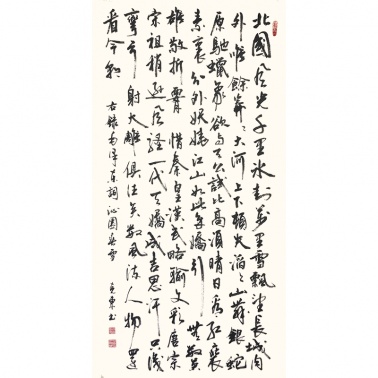 北國風光千里冰封萬里雪飄望長城内
外惟餘莽〻大河上下頓失滔〻山舞銀蛇
原馳蠟象欲与天公試比高須晴日看紅裝
素裹分外妖嬈江山如此多嬌引無數英
雄競折腰惜秦皇漢武略輸文彩唐宗
宋祖稍遜風騷一代天驕成吉思汗只識
彎弓射大雕俱往矣數風流人物還
看今朝 右錄毛澤東詞沁園春雪 東書